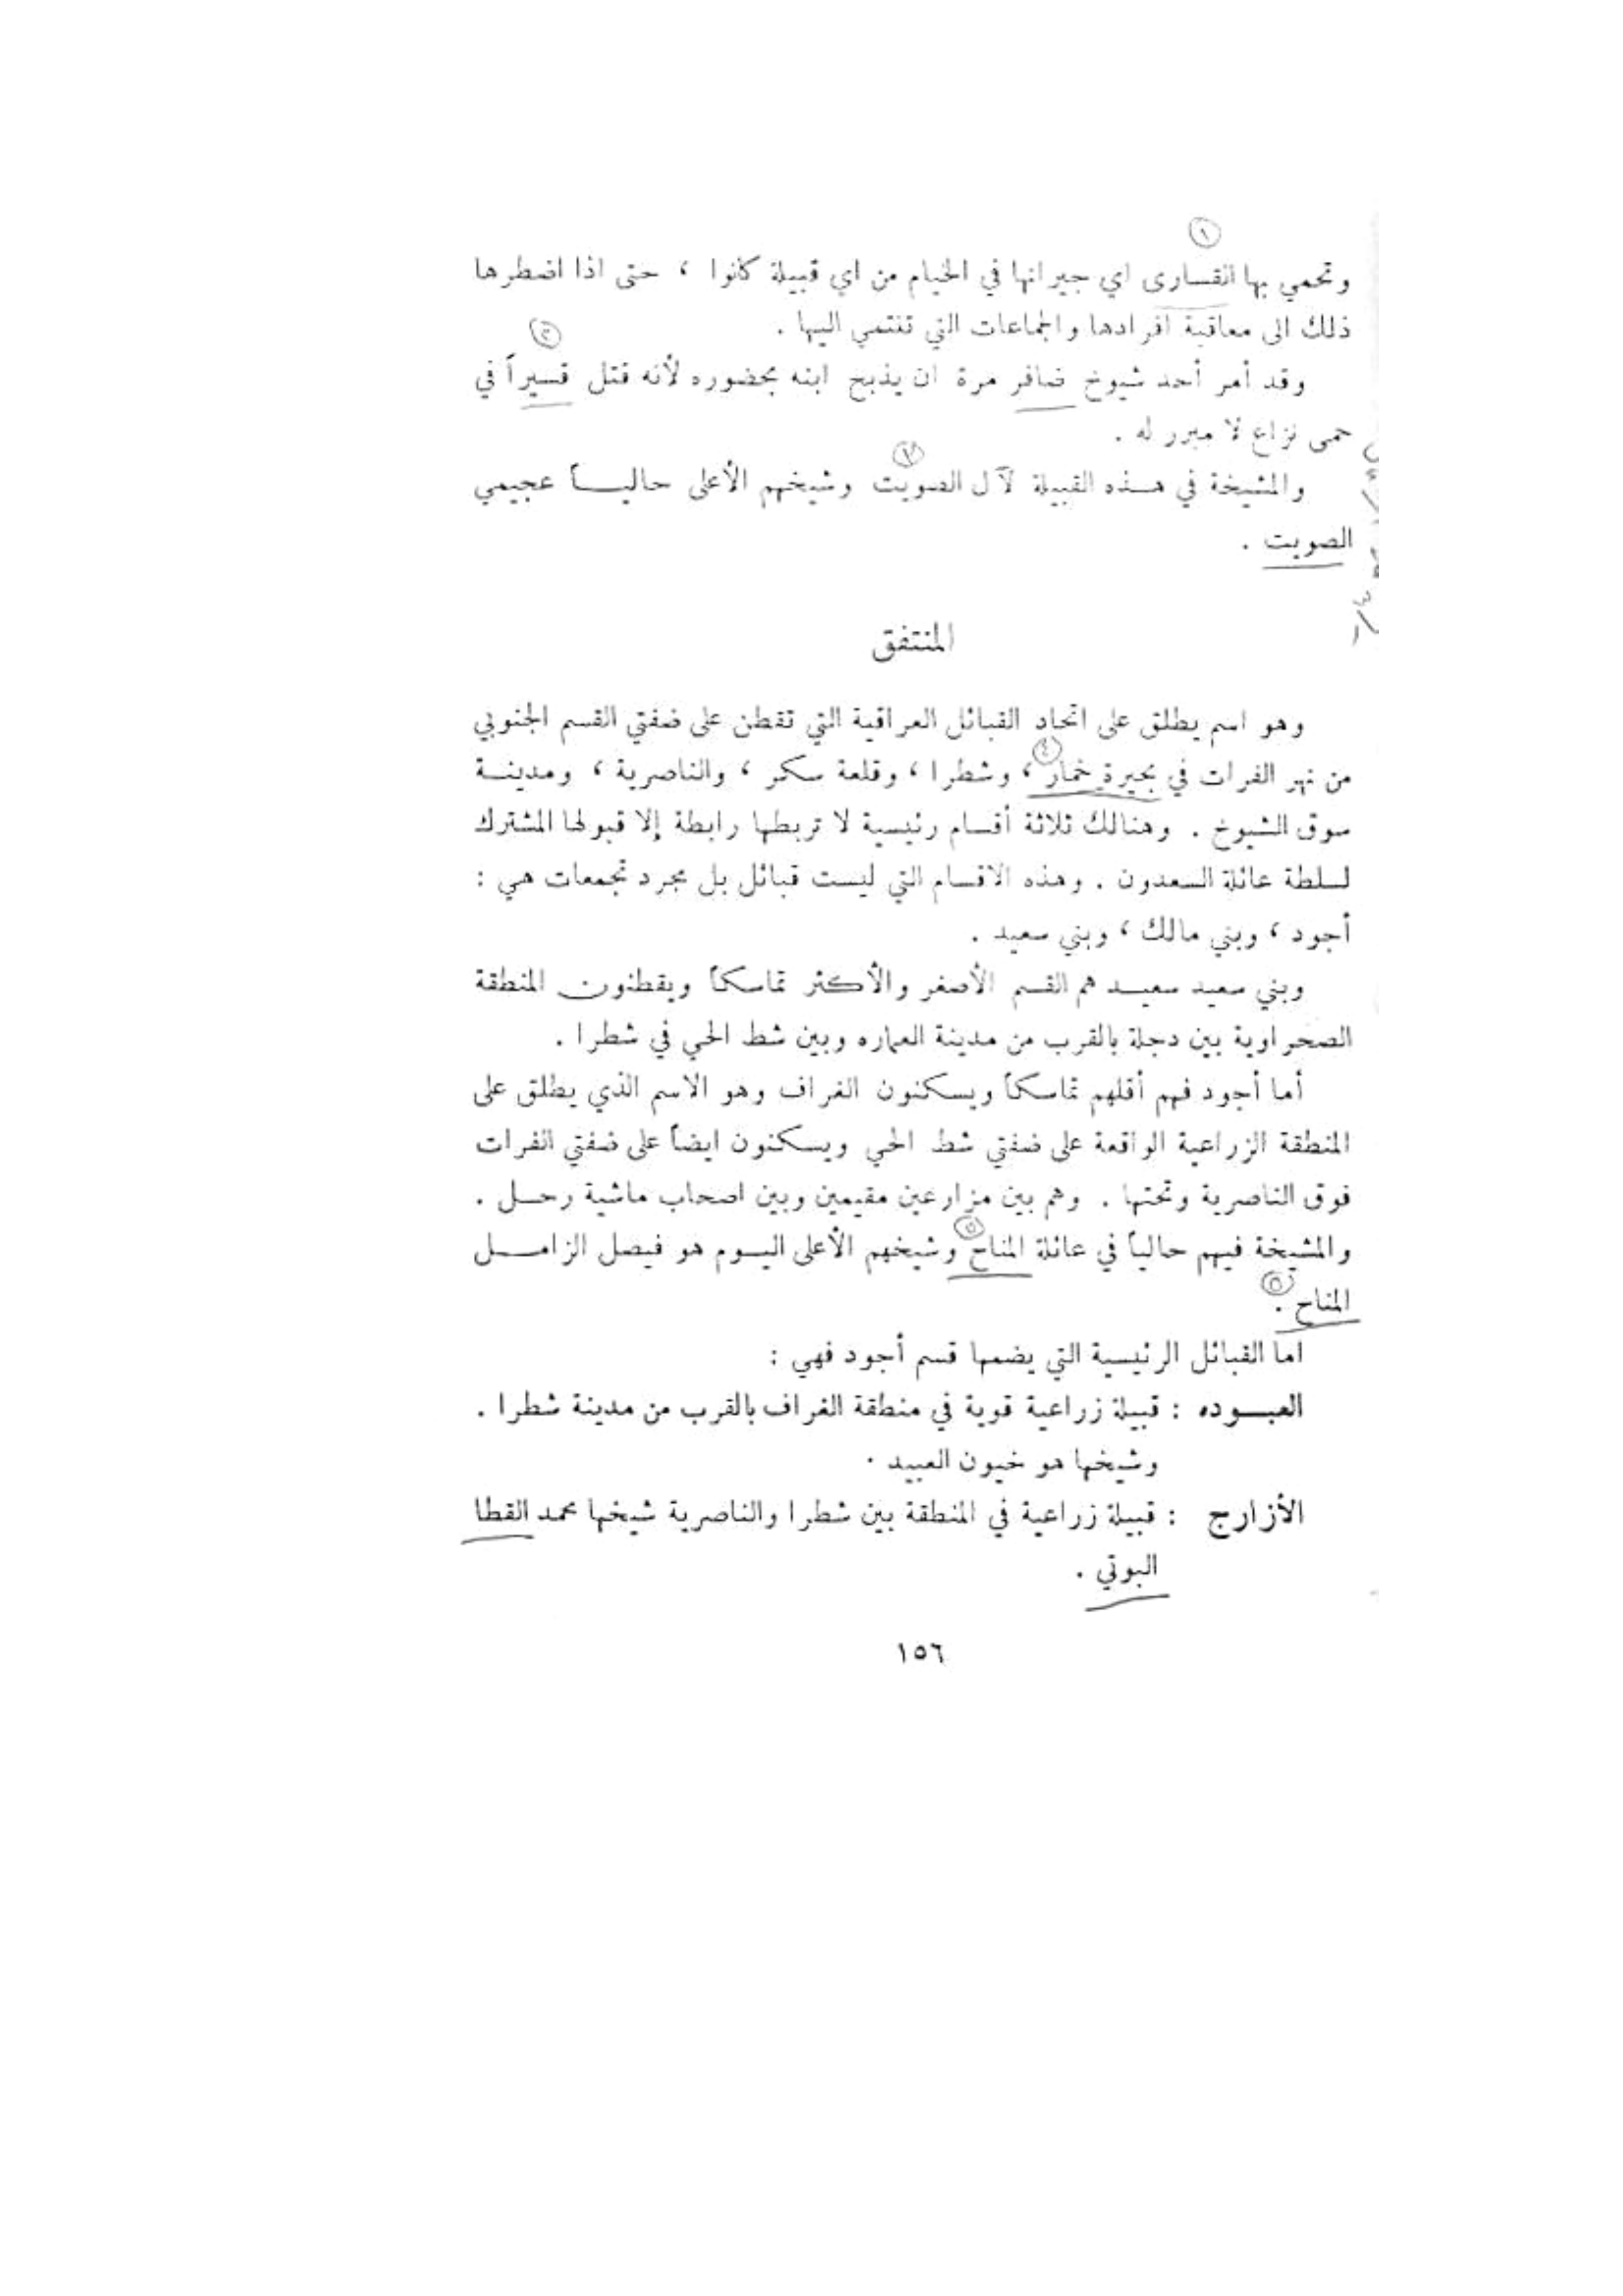 ١
وتحمي بها القسارى اي جيرانها في الخيام من اي قبيلة كانوا ، حتى اذا اضطرها
ذلك الى معاقبة افرادها والجماعات التي تنتمي اليها .
٢
وقد أمر أحد شيوخ ضافر مرة ان يذبح ابنه بحضوره لأنه قتل قسيراً في
حمى نزاع لا مبرر له .
٣
والمشيخة في هـذه القبيلة لآل الصويت وشيخهم الأعلى حاليـاً عجيمي
الصويت .
المنتفق
وهو اسم يطلق على اتحاد القبائل العراقية التي تقطن على ضفتي القسم الجنوبي
٤
من نهر الفرات في بحيرة خمار ، وشطرا ، وقلعة سكر ، والناصرية ، ومدينـة
سوق الشيوخ . وهنالك ثلاثة أقسام رئيسية لا تربطها رابطة إلا قبولها المشترك
لسلطة عائلة السعدون . وهذه الاقسام التي ليست قبائل بل مجرد تجمعات هي :
أجود ، وبني مالك ، وبني سعيد .
وبني سعيد سعيـد هم القسم الأصغر والأكثر تماسكاً ويقطنون المنطقة
الصحراوية بين دجلة بالقرب من مدينة العماره وبين شط الحي في شطرا .
أما أجود فهم أقلهم تماسكاً ويسكنون الغراف وهو الاسم الذي يطلق على
المنطقة الزراعية الواقعة على ضفتي شط الحي ويسكنون ايضاً على ضفتي الفرات
فوق الناصرية وتحتها . وهم بين مزارعين مقيمين وبين اصحاب ماشية رحـل .
٥
والمشيخة فيهم حالياً في عائلة المناح وشيخهم الأعلى اليـوم هو فيصل الزامـل
٥
المناح .
اما القبائل الرئيسية التي يضمها قسم أجود فهي :
العبـوده : قبيلة زراعية قوية في منطقة الغراف بالقرب من مدينة شطرا .
وشيخها هو خيون العبيد .
الأزارج : قبيلة زراعية في المنطقة بين شطرا والناصرية شيخها محمد القطا
البوتي .
١٥٦